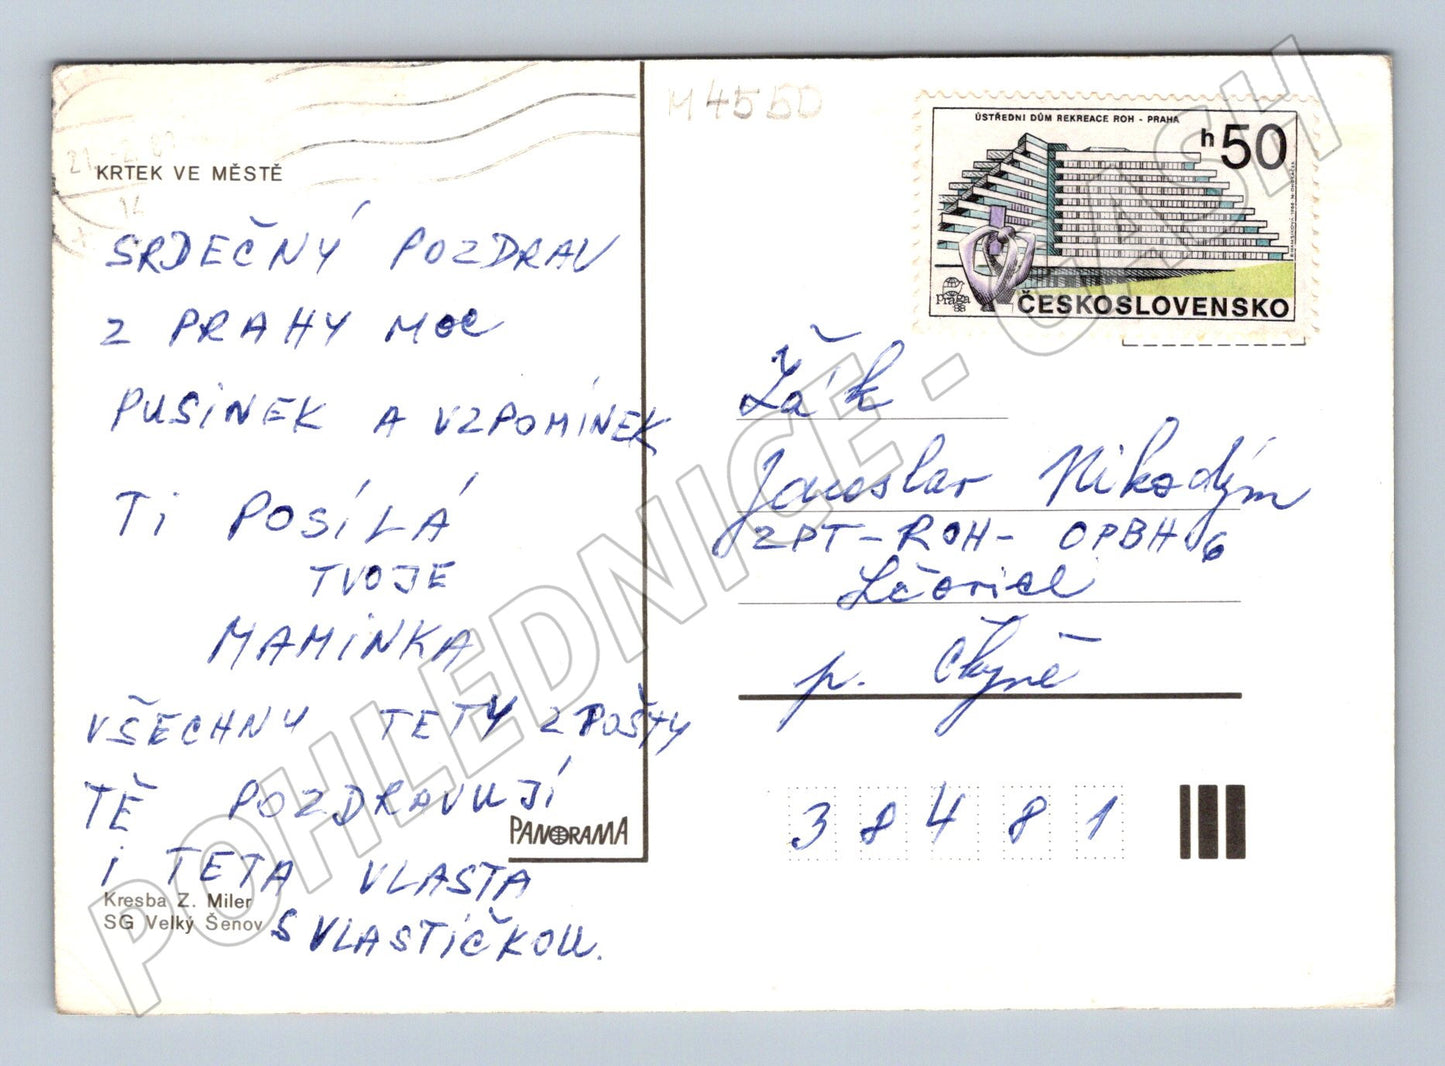 M4550
ÚSTŘEDNÍ DŮM REKREACE ROH - PRAHA
h 50
praga 88
ČESKOSLOVENSKO
KRTEK VE MĚSTĚ
SRDEČNÝ POZDRAV
Z PRAHY MOC
PUSINEK A VZPOMÍNEK
TI POSÍLÁ
TVOJE
MAMINKA
VŠECHNY TETY Z POŠTY
TĚ POZDRAVUJÍ
I TETA VLASTA
S VLASTIČKOU.
PANORAMA
Kresba Z. Miler
SG Velký Šenov
Žák
Jaroslav Nikodým
ZPT-ROH- OPBH 6
Lčovice
p. Čkyně
38481
POHLEDNICE - CASH